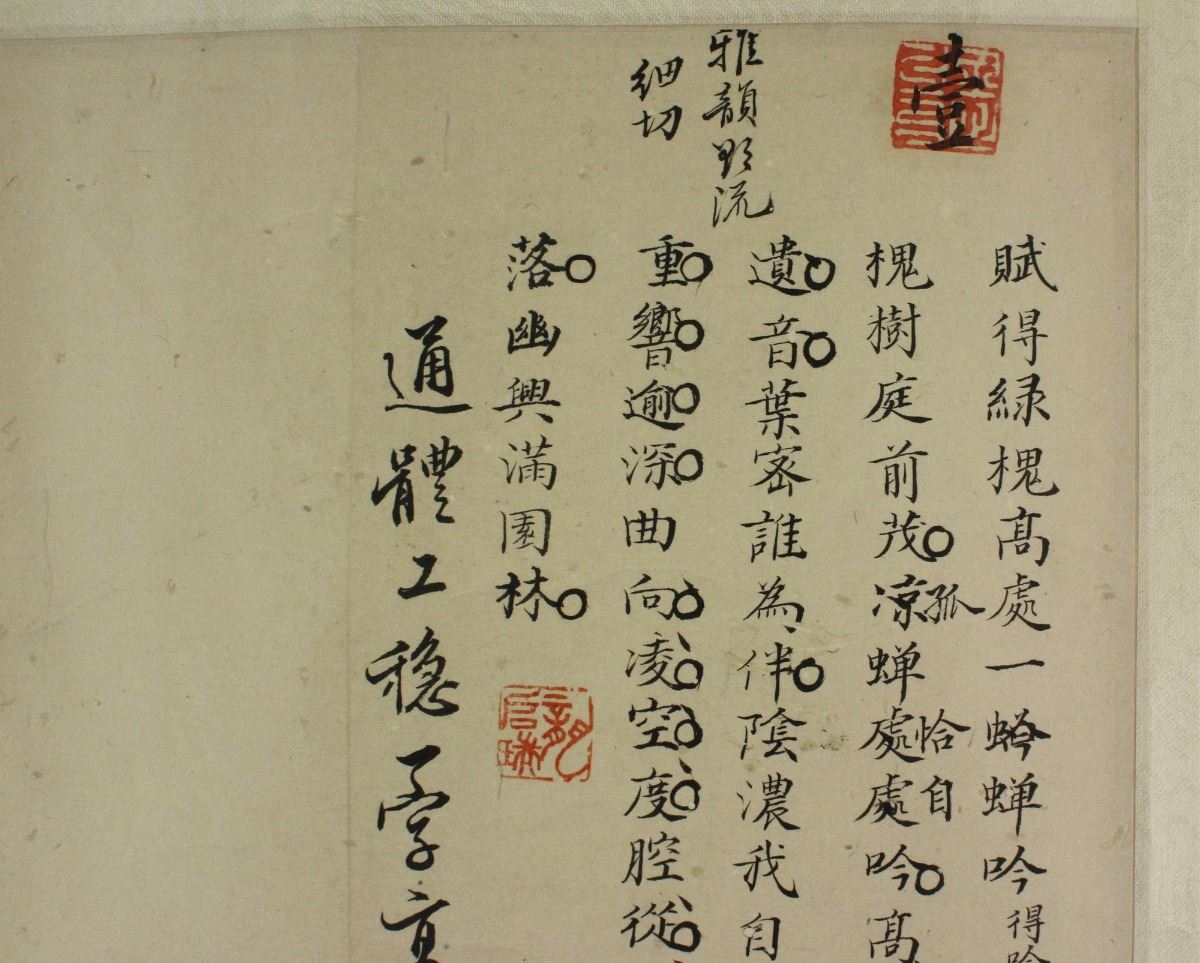 壹
賦得緑槐髙處一蟬吟
得吟
槐樹庭前茂凉蟬處處吟髙
孤
恰自
遺音葉宻誰為伴陰濃我自
重響逾深曲向凌空度腔從
落幽興滿園林
雅韻
流
細切
通體工穩字